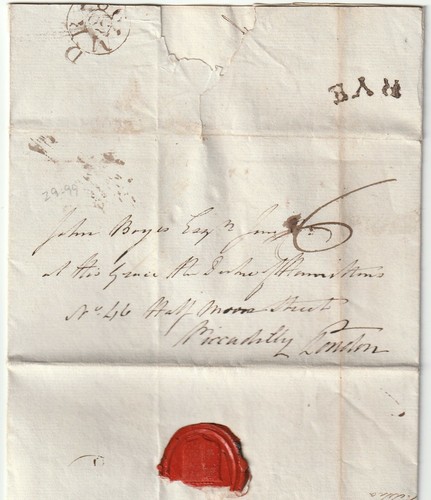 RYE
29-99
6
John Boyes Esqr Junr
at His Grace the Duke of Hamiltons
No. 46 Half Moon Street
Piccadilly London